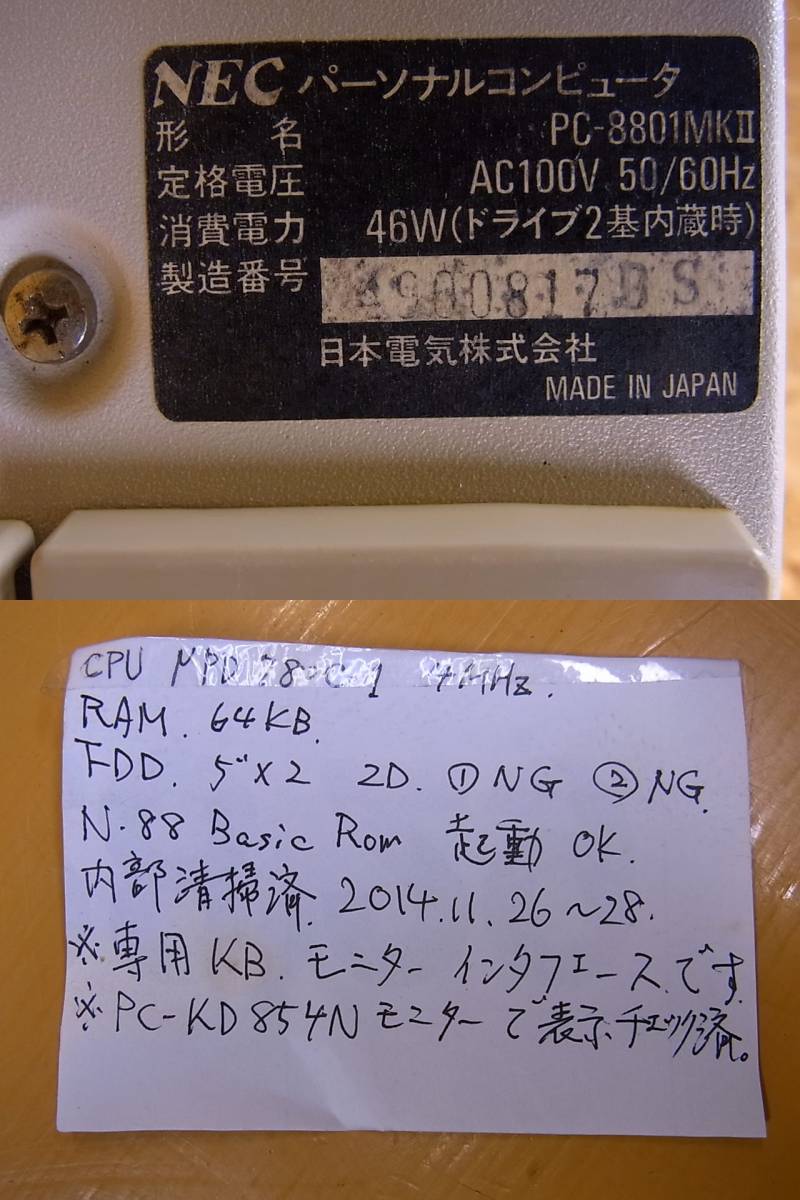 NEC パーソナルコンピュータ
形名 PC-8801MKⅡ
定格電圧 AC100V 50/60Hz
消費電力 46W(ドライブ2基内蔵時)
製造番号
日本電気株式会社
MADE IN JAPAN
CPU μPD 780C-1 4MHz.
RAM. 64KB.
FDD. 5"×2 2D. ①NG ②NG.
N-88 Basic Rom 起動 OK.
内部清掃済. 2014.11.26~28.
※専用KB. モニターインタフェースです.
※PC-KD854Nモニターで表示チェック済。